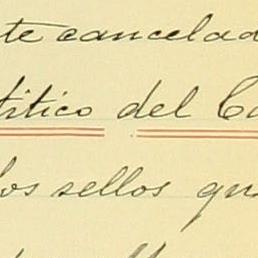 te cancelad
titico del Ca
los sellos que